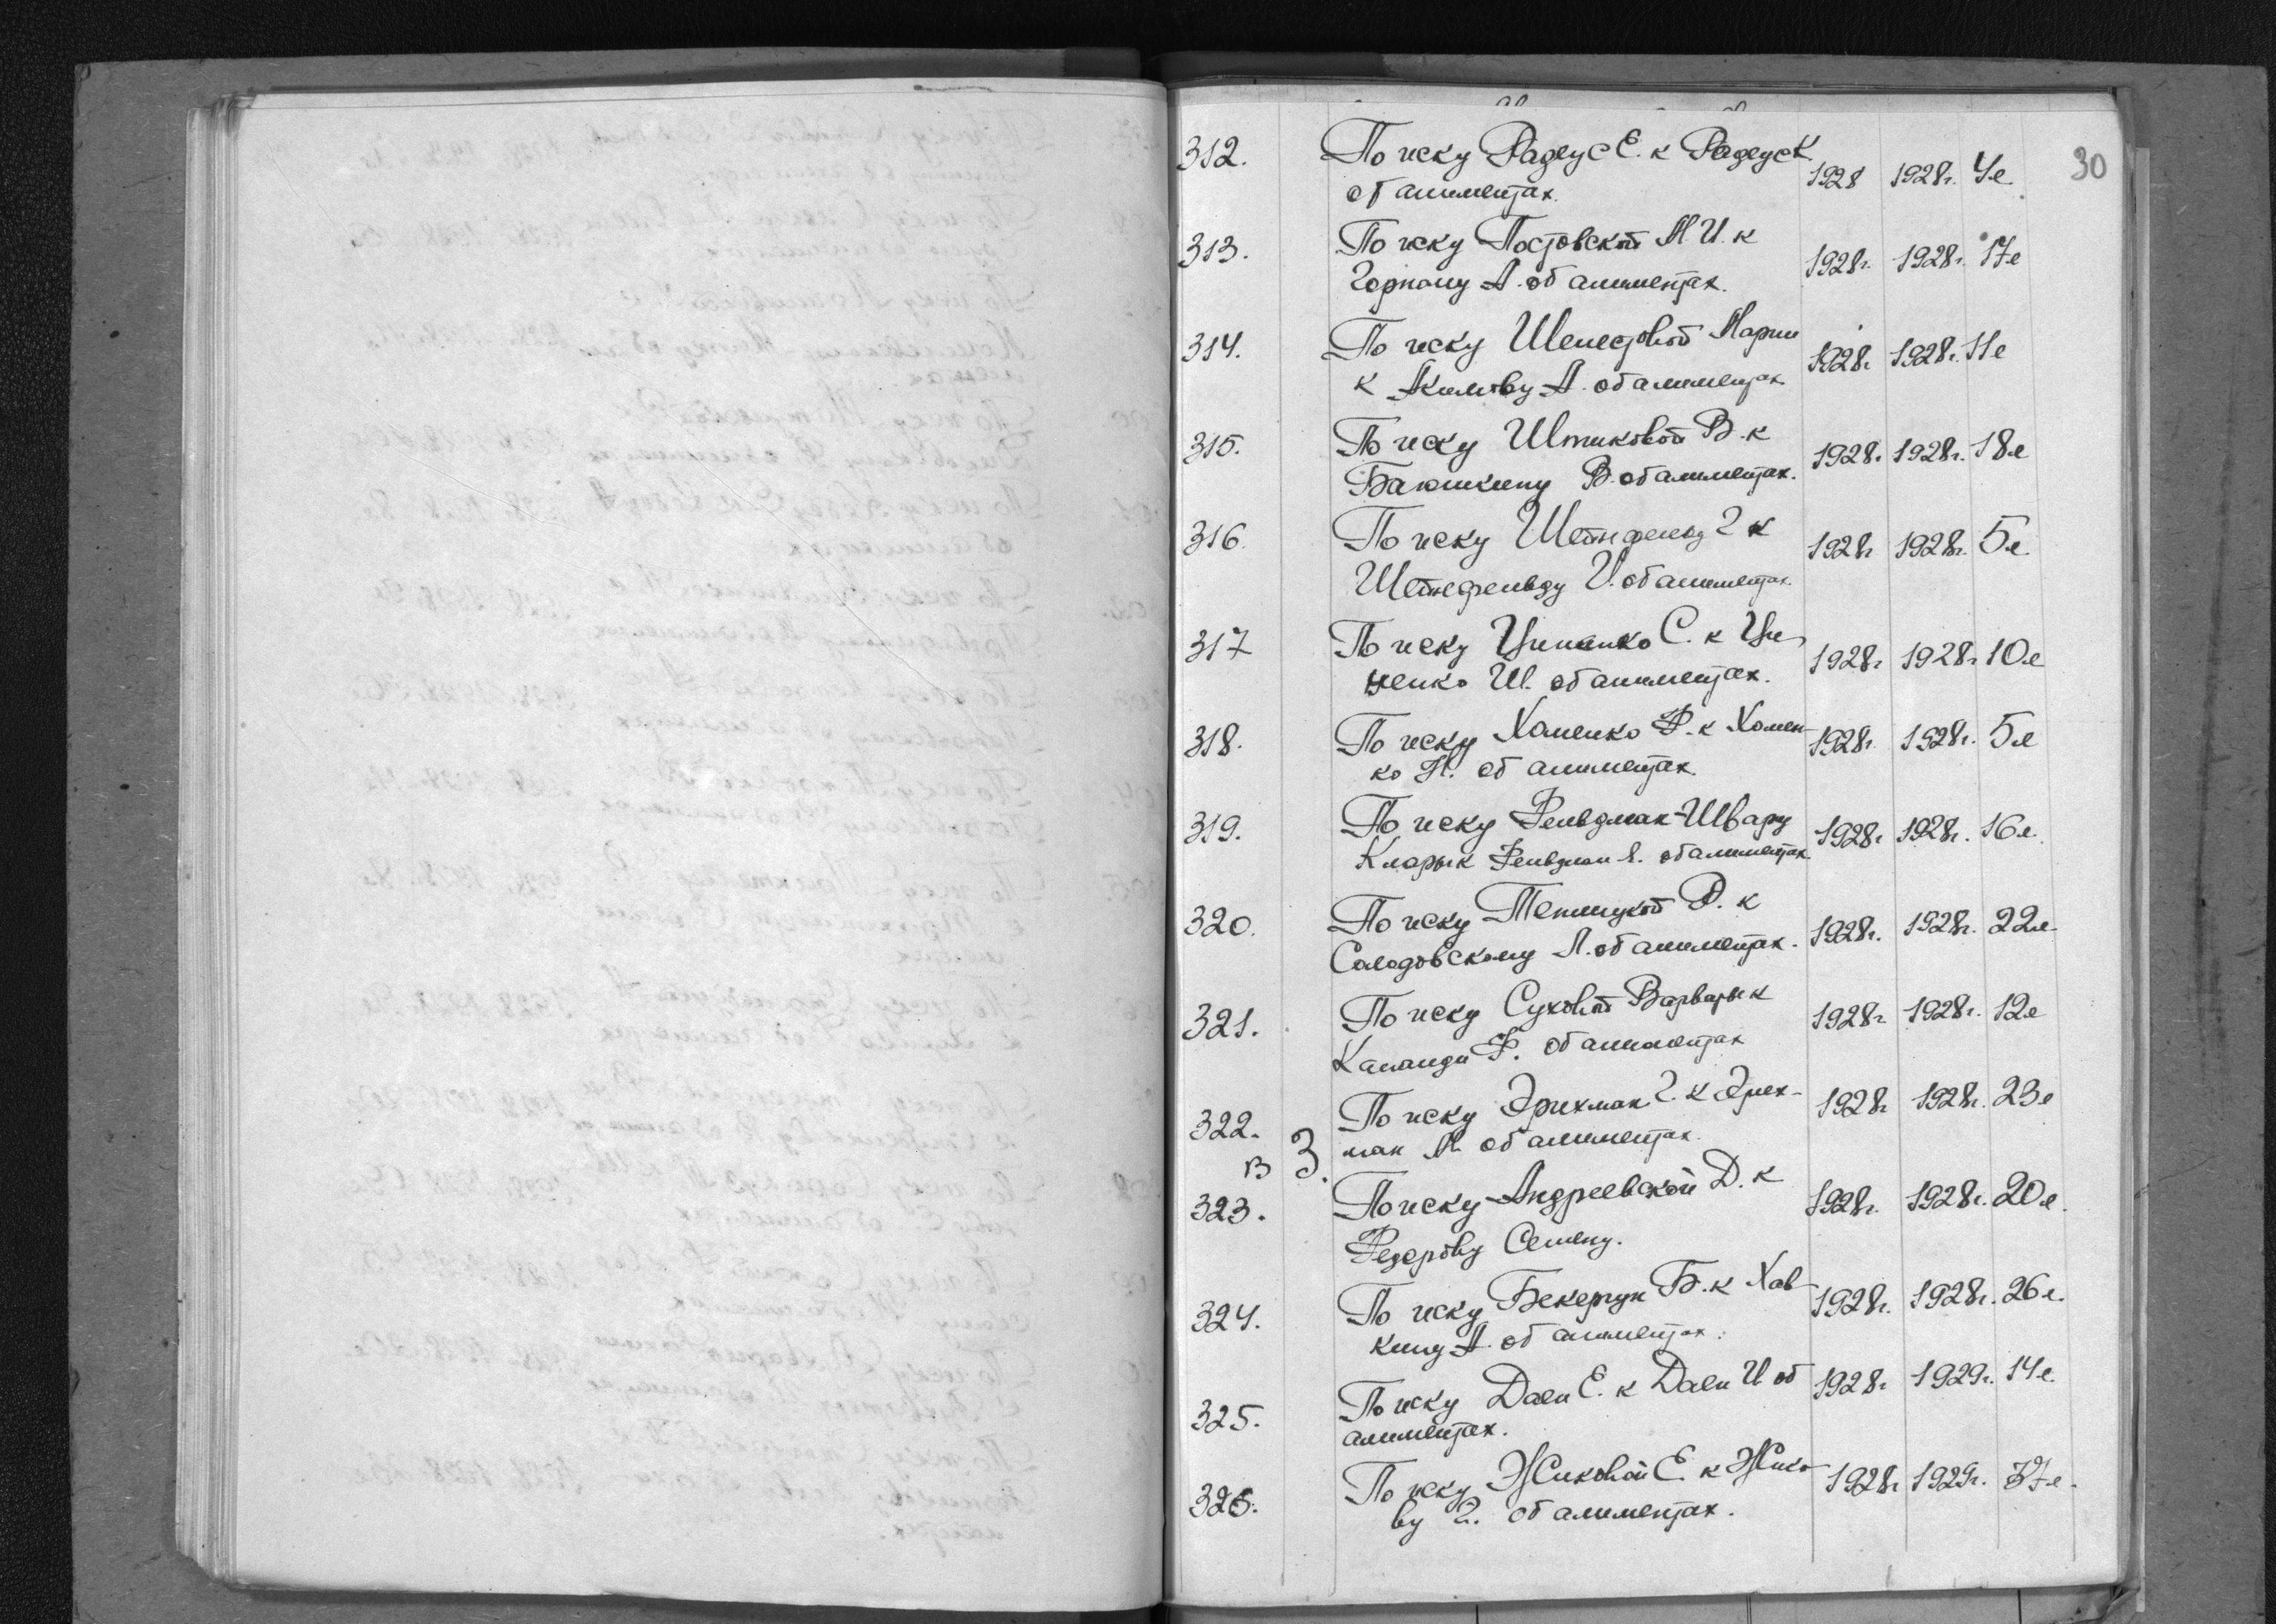 30
312. По иску Радеус Е. к Радеус К
об алиментах. 1928 1928г. 4л.
313. По иску Постовской М И. к
Горному А. об алиментах. 1928г. 1928г. 17л
314. По иску Шелестовой Марии
к Акимову А. об алиментах 1928г. 1928г. 11л
315. По иску Шпиковой В. к
Баюшкину В. об алиментах. 1928г. 1928г. 18л
316. По иску Штейнфельд Г к
Штейнфельду И. об алиментах. 1928г 1928г. 5л.
317 По иску Ципенко С. к Ци
пенко Ш. об алиментах. 1928г 1928г 10л
318. По иску Хоменко Ф. к Хомен-
ко Н. об алиментах. 1928г. 1928г. 5л
319. По иску Фельдман-Шварц
Клары к Фельдман Я. об алиментах. 1928г 1928г. 16л.
320. По иску Теплицкой Р. к
Солодовскому Л. об алиментах. 1928г. 1928г. 22л.
321. По иску Суховой Варвары к
Капанди Ф. об алиментах 1928г. 1928г. 12л
322. По иску Эрихман Г. к Эрих-
ман М. об алиментах. 1928г 1928г. 23л
в 3.
323. По иску Андреевской Д. к
Федорову Семену. 1928г. 1928г. 20л.
324. По иску Бекерчук Б. к Хав-
кину А. об алиментах. 1928г. 1928г. 26л.
325. По иску Дали Е. к Дали И об
алиментах. 1928г. 1929г. 14л.
326. По иску Жиковой Е. к Жико-
ву Г. об алиментах. 1928г 1929г. 37л.